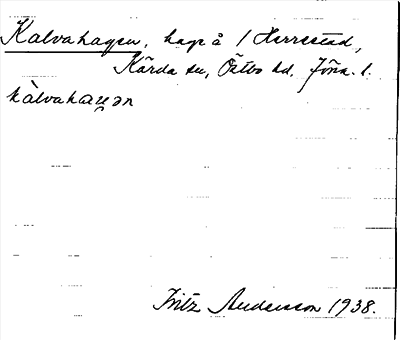 Kalvahagen, hage å 1 Herrestad,
Kärda sn, Östbo hd. Jönk. l.
kàlvahaգən
Fritz Andersson 1938.